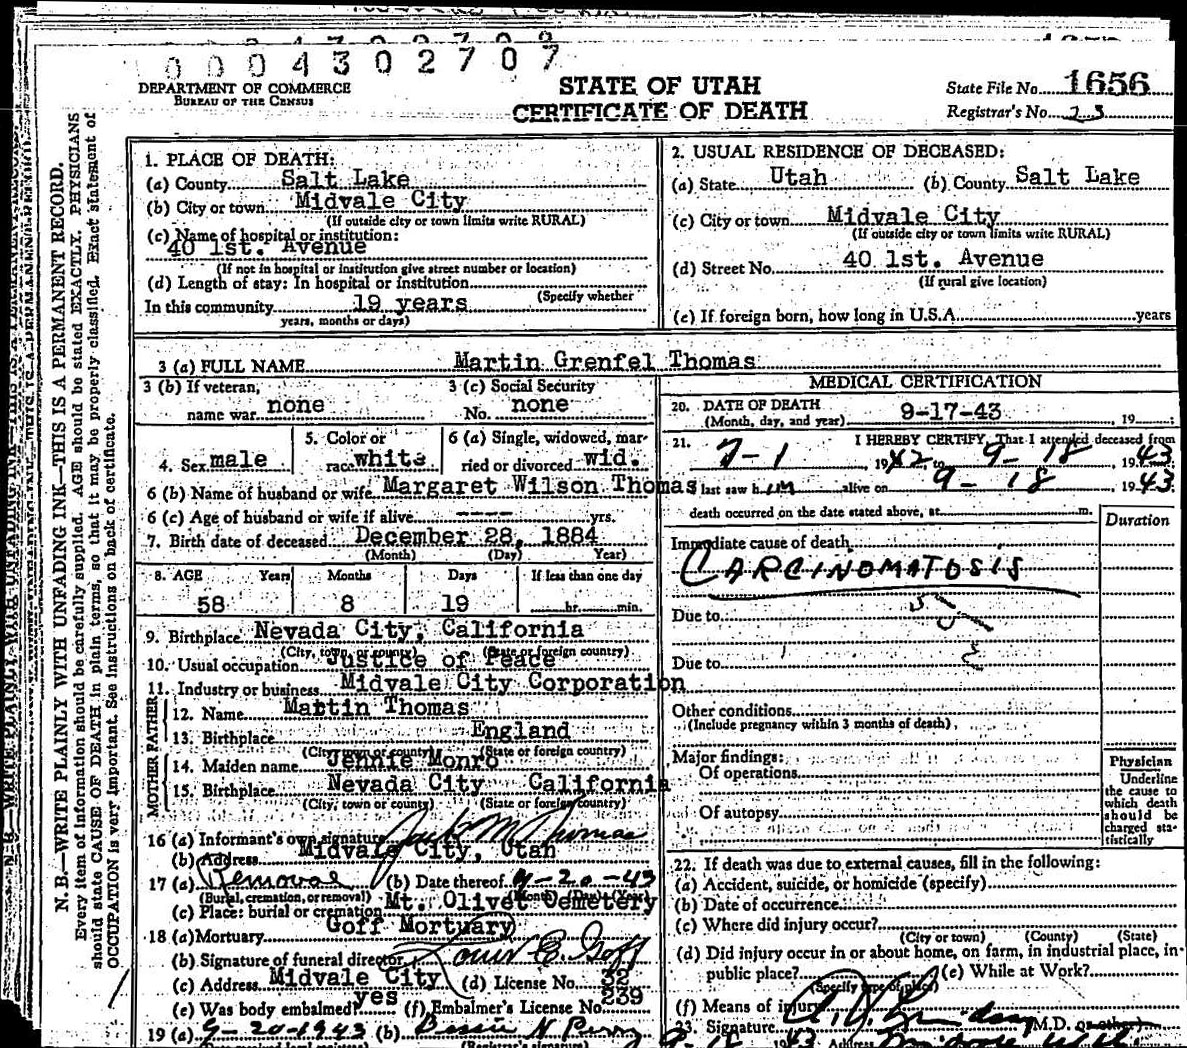 0004302707
DEPARTMENT OF COMMERCE
BUREAU OF THE CENSUS
STATE OF UTAH
CERTIFICATE OF DEATH
State File No. 1656
Registrar's No. 23
N. B.—WRITE PLAINLY WITH UNFADING INK—THIS IS A PERMANENT RECORD.
Every item of information should be carefully supplied. AGE should be stated EXACTLY. PHYSICIANS
should state CAUSE OF DEATH in plain terms, so that it may be properly classified. Exact statement of
OCCUPATION is very important. See instructions on back of certificate.
1. PLACE OF DEATH:
(a) County Salt Lake
(b) City or town Midvale City
(If outside city or town limits write RURAL)
(c) Name of hospital or institution:
40 1st. Avenue
(If not in hospital or institution give street number or location)
(d) Length of stay: In hospital or institution
(Specify whether
In this community 19 years
years, months or days)
2. USUAL RESIDENCE OF DECEASED:
(a) State Utah (b) County Salt Lake
(c) City or town Midvale City
(If outside city or town limits write RURAL)
(d) Street No. 40 1st. Avenue
(If rural give location)
(e) If foreign born, how long in U.S.A. years
3 (a) FULL NAME Martin Grenfel Thomas
3 (b) If veteran,
name war none
3 (c) Social Security
No. none
4. Sex male
5. Color or
race white
6 (a) Single, widowed, mar-
ried or divorced wid.
6 (b) Name of husband or wife Margaret Wilson Thomas
6 (c) Age of husband or wife if alive ---- yrs.
7. Birth date of deceased December 28, 1884
(Month) (Day) Year)
8. AGE Years Months Days If less than one day
58 8 19 hr. min.
9. Birthplace Nevada City, California
(City, town, or county) (State or foreign country)
10. Usual occupation Justice of Peace
11. Industry or business Midvale City Corporation
FATHER
12. Name Martin Thomas
13. Birthplace England
(City, town or county) (State or foreign country)
MOTHER
14. Maiden name Jennie Monro
15. Birthplace Nevada City California
(City, town or county) (State or foreign country)
16 (a) Informant's own signature Jack M Thomas
(b) Address Midvale City, Utah
17 (a) Removal (b) Date thereof 9-20-43
(Burial, cremation, or removal) (Month) (Day) (Year)
(c) Place: burial or cremation Mt. Olivet Cemetery
18 (a) Mortuary Goff Mortuary
(b) Signature of funeral director
(c) Address Midvale City (d) License No. 32
(e) Was body embalmed? yes (f) Embalmer's License No. 239
19 (a) 9-20-1943 (b) Bessie N
MEDICAL CERTIFICATION
20. DATE OF DEATH
(Month, day, and year) 9-17-43, 19
21. I HEREBY CERTIFY, That I attended deceased from
7-1, 1942 to 9-18, 1943
I last saw him alive on 9-18, 1943
death occurred on the date stated above, at m.
Duration
Immediate cause of death
CARCINOMATOSIS
Due to
Due to
Other conditions
(Include pregnancy within 3 months of death)
Major findings:
Of operations
Of autopsy
Physician
Underline
the cause to
which death
should be
charged sta-
tistically
22. If death was due to external causes, fill in the following:
(a) Accident, suicide, or homicide (specify)
(b) Date of occurrence
(c) Where did injury occur?
(City or town) (County) (State)
(d) Did injury occur in or about home, on farm, in industrial place, in
public place? (e) While at Work?
(Specify type of place)
(f) Means of injury
23. Signature (M.D. or other)
9-18 1943 Address